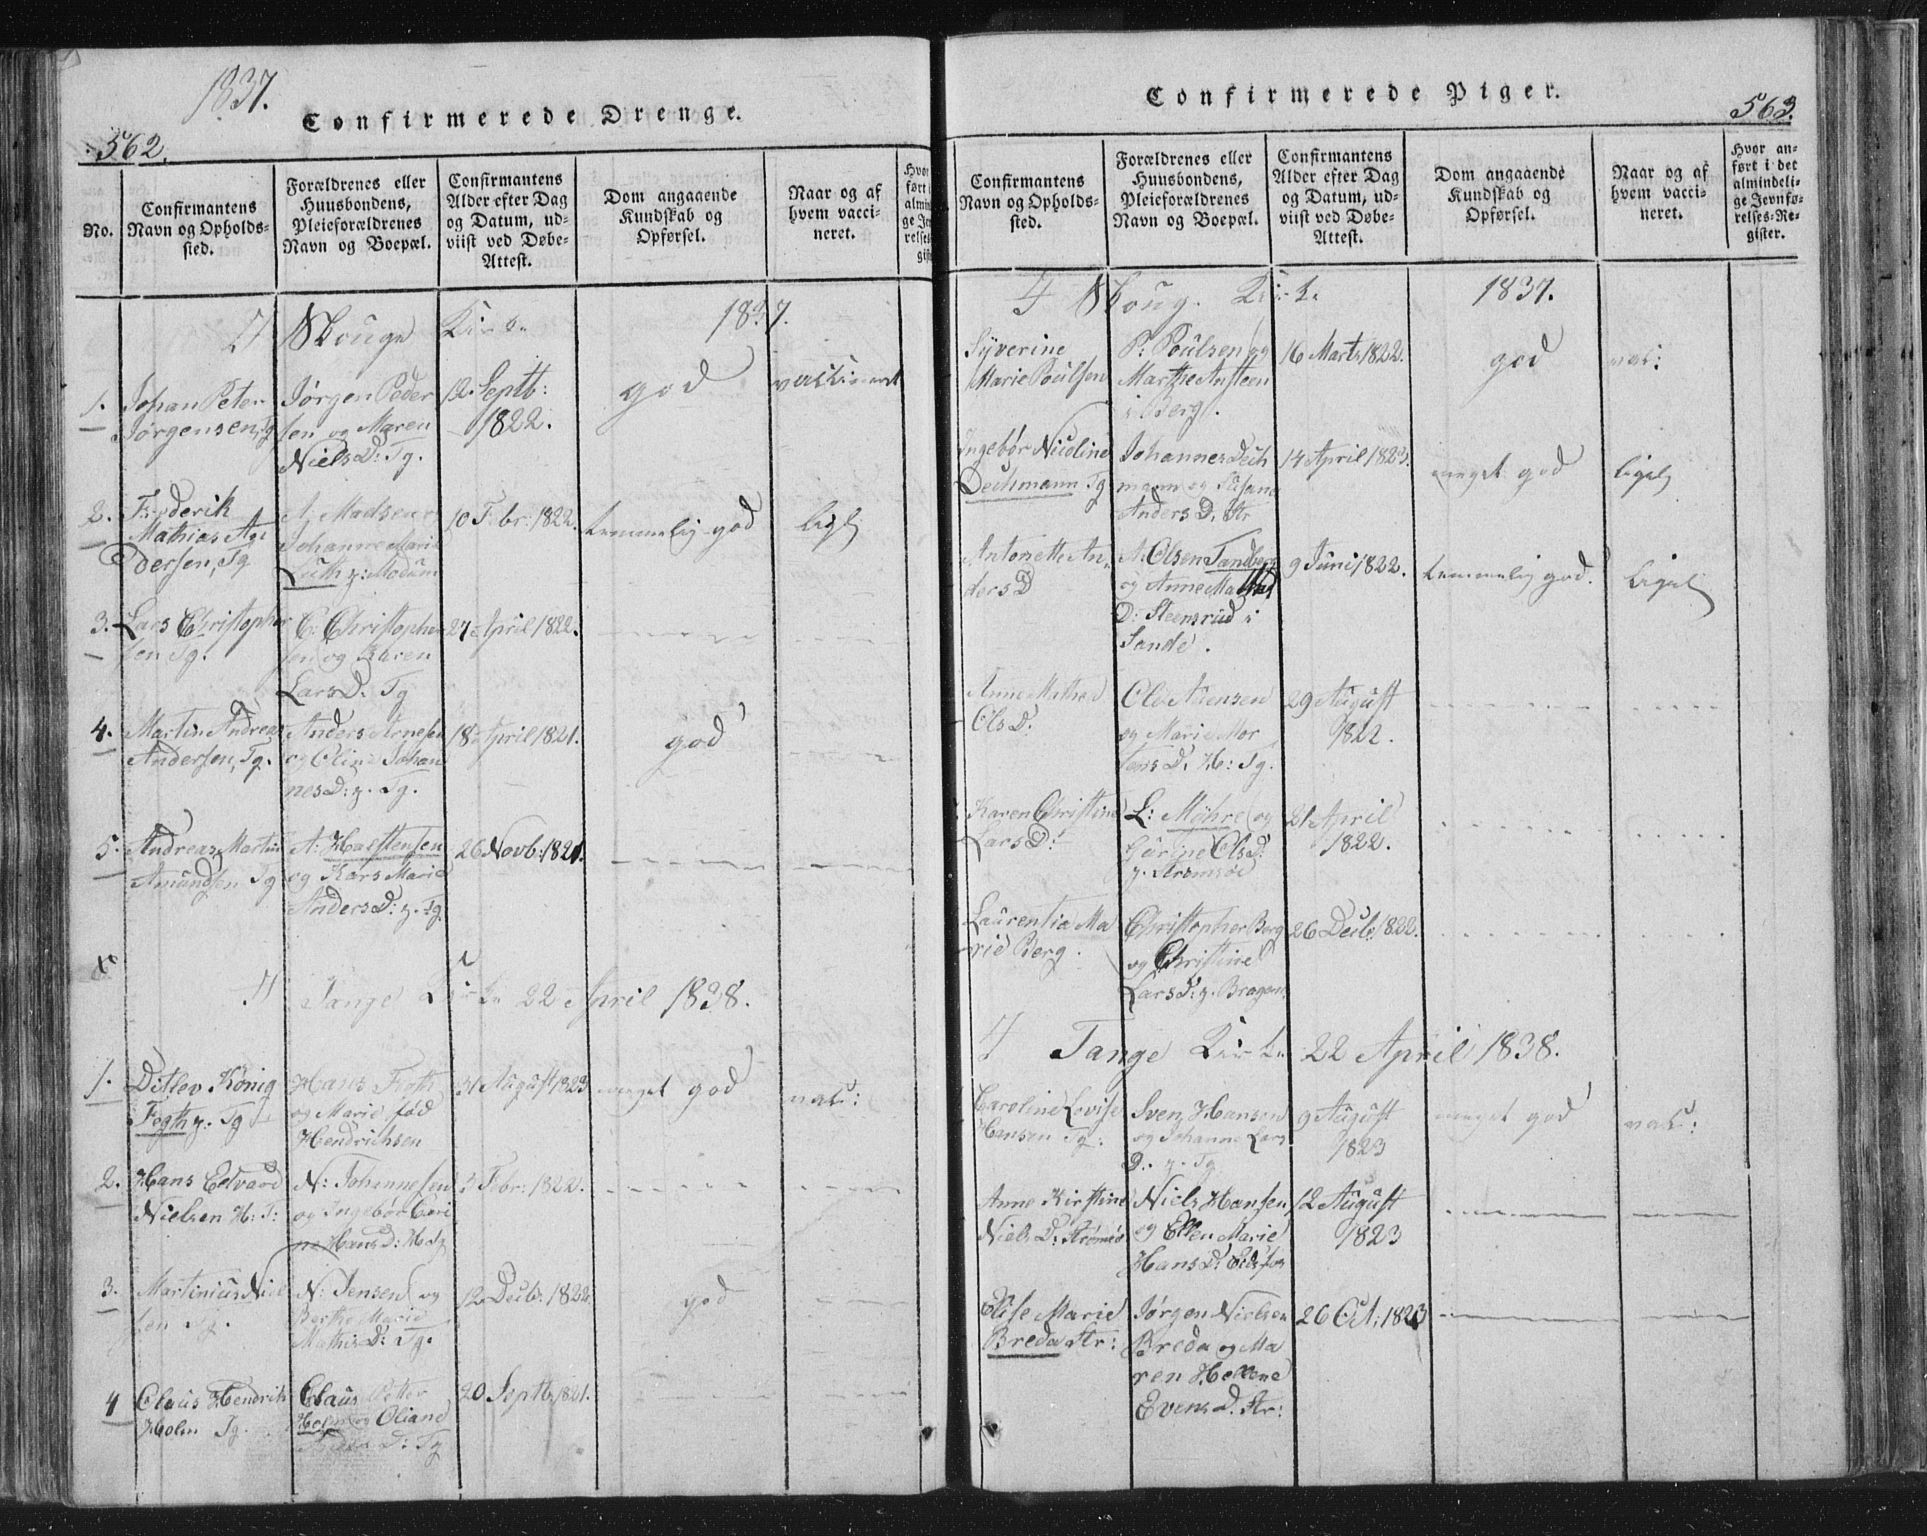 1837.
Confirmerede Drenge.
562.
No.
Confirmantens
Navn og Opholds-
sted.
Forældrenes eller
Huusbondens,
Pleieforældrenes
Navn og Boepæl.
Confirmantens
Alder efter Dag
og Datum, ud-
viist ved Døbe-
Attest.
Dom angaaende
Kundskab og
Opførsel.
Naar og af
hvem vacci-
neret.
Skouge Kirke 1837.
1.
Johan Peter
Jørgensen, Tg
Jørgen Peder
sen og Maren
Niels D: Tg.
12. Septb:
1822.
god
vaccineret
2.
Frederik
Mathias An
dersen, Tg
A. Madsen
Johanne Marie
Luth z: Modum
10 Febr: 1822.
temmelig god
ligl
3.
Lars Christopher
sen Tg.
C: Christopher
sen og Karen
Lars D: Tg
27 April 1822.
4.
Martin Andreas
Andersen, Tg.
Anders Arnesen
og Oline Johan
nes D: z. Tg.
18 April 1821.
god
5.
Andreas Martin
Amundsen Tg
A: Karstensen
og Kars Marie
Anders D: z. Tg.
26 Novb: 1821.
Tange Kirke 22 April 1838.
1.
Ditlev König
Fogth z. Tg
Hans Fogth
og Marie fød
Hendrichsen
31 August 1823
meget god
vac:
2.
Hans Edvard
Nielsen H: T:
N: Johannesen
og Ingebor Cari
ne Hans D: H Tg
3 Febr: 1822.
3.
Martinius Niel
sen Tg.
N: Jensen og
Berthe Marie
Mathis D: Tg.
12 Decb: 1822.
god
4
Claus Hendrik
Holm Tg.
Claus Petter
Holm og Oliane
D: Tg
20 Septb, 1821.
Confirmerede Piger.
563.
Confirmantens
Navn og Opholds-
sted.
Forældrenes eller
Huusbondens,
Pleieforældrenes
Navn og Boepæl.
Confirmantens
Alder efter Dag
og Datum, ud-
viist ved Døbe-
Attest.
Dom angaaende
Kundskab og
Opførsel.
Naar og af
hvem vacci-
neret.
Hvor an-
ført i det
almindeli-
ge Jevnfø-
relses-Re-
gister.
Skoug. Kirke 1837.
Syverine
Marie Poulsen
P: Poulsen og
Marthe Ansteen
i Berg.
16 Marts 1822.
god
vac:
Ingebør Nicoline
Dechmann Tg
Johannes Dech
mann og Susane
Anders D. Str
14 April 1823.
meget god
ligel
Antonette An
ders D
A. Olsen Tandberg
og Anne Mathea
D: Steensrud i
Sande.
9 Juni 1822.
temmelig god.
ligel
Anne Mathea
Ols D.
Ole Auensen
og Marie Mor
tens D. H: Tg.
29 August
1822.
Karen Christine
Lars D:
L: Møhre og
Gurine Ols D:
z. Strømsøe
21 April
1822.
Laurentia Ma
rie Berg.
Christopher Berg
og Christine
Lars D: z. Bragens
26 Decb, 1822.
Tange Kirke 22 April 1838.
Caroline Lovise
Hansen Tg:
Svenz Hansen
og Johanne Lars
D. z. Tg
9 August
1823
meget god
vac:
Anne Kirstine
Niels D: Strømsø
Niels Hansen
og Ellen Marie
Hans D. Eidsfos
12 August
1823
Elise Marie
Breda Str:
Jørgen Nielsen
Breda og Ma
ren Hellene
Evens D. Str:
26 Oct: 1823